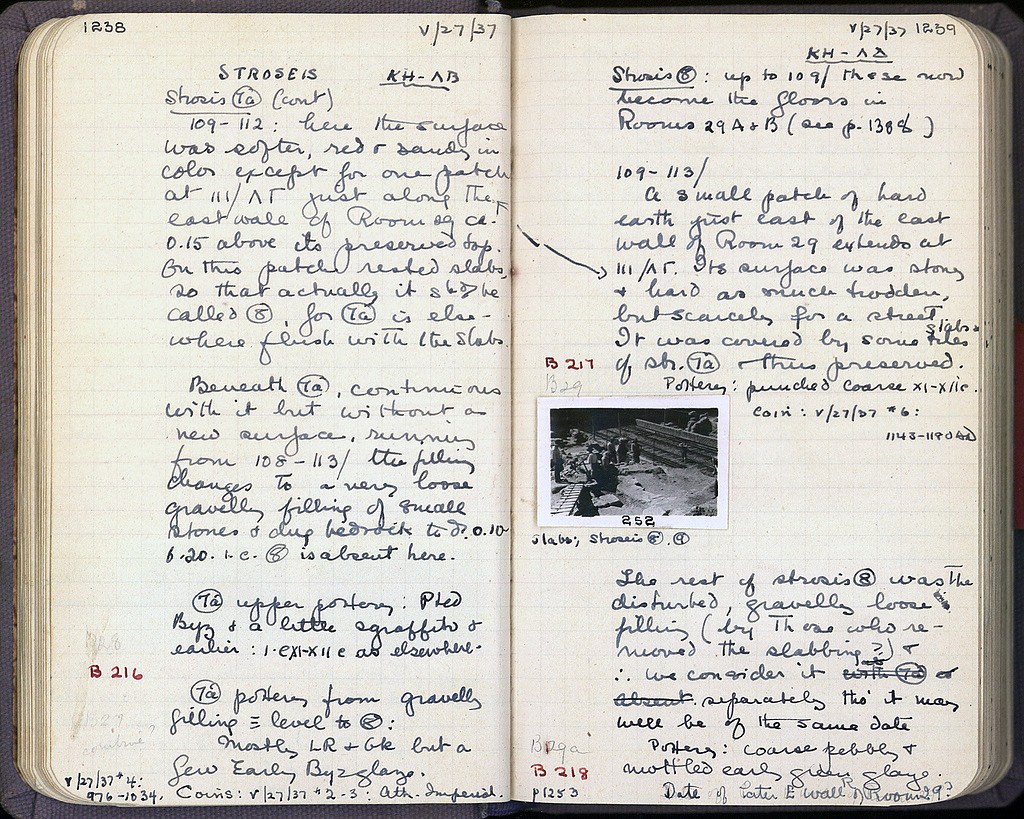 1238 V/27/37
STROSEIS KH-ΛB
Strosis 7a (cont)
109-112: here the surface
was softer, red & sandy in
color except for one patch
at 111/ΛΓ just along the
east wall of Room 29 ca.
0.15 above its preserved top.
On this patch rested slabs,
so that actually it shd be
called 8, for 7a is else-
where flush with the slabs.
Beneath 7a, continuous
with it but without a
new surface, running
from 108-113/ the filling
changes to a very loose
gravelly filling of small
stones & dug bedrock to d. 0.10-
0.20. i.e. 8 is absent here.
7a upper pottery: Pted
Byz & a little sgraffito &
earlier: i.e. XI-XII c as elsewhere.
B 216
7a pottery from gravelly
filling ≡ level to 8:
Mostly LR & Gk but a
few Early Byz glaze.
V/27/37 #4:
976-1034. Coins: V/27/37 #2-3: Ath. Imperial.
V/27/37 1239
KH-ΛΔ
Strosis 8: up to 109/ these now
become the floors in
Rooms 29 A & B (see p. 1388)
109-113/
A small patch of hard
earth just east of the east
wall of Room 29 extends at
111/ΛΓ. Its surface was stony
& hard as much trodden,
but scarcely for a street.
It was covered by some tiles slabs
of str. 7a & thus preserved.
B 217
B29
Pottery: punched coarse XI-XII c.
Coin: V/27/37 #6:
1143-1180 AD
252
slabs; Stroseis 8, 9
The rest of strosis 8 was the
disturbed, gravelly loose
filling (by those who re-
moved the slabbing?) &
∴ we consider it with 7a or
absent separately tho' it may
well be of the same date
Pottery: coarse pebbly &
mottled early green glaze.
B29a
B 218
p1253
Date of later E wall of Room 29?